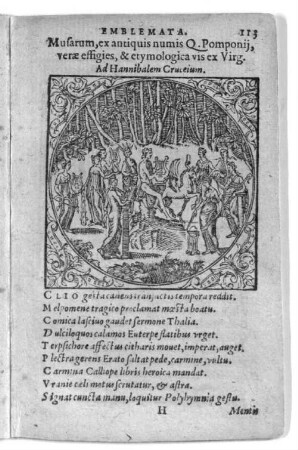 EMBLEMATA. 113
Musarum, ex antiquis numis Q. Pomponij,
veræ effigies, & etymologica vis ex Virg.
Ad Hannibalem Cruceium.
CLIO gesta canens transactis tempora reddit.
Melpomene tragico proclamat mœsta boatu.
Comica lasciuo gaudet sermone Thalia.
Dulciloquos calamos Euterpe flatibus vrget.
Terpsichore affectus citharis mouet, imperat, auget.
Plectra gerens Erato saltat pede, carmine, voltu.
Carmina Calliope libris heroica mandat.
Vranie cœli motus scrutatur, & astra.
Signat cuncta manu, loquitur Polyhymnia gestu.
H Mentis